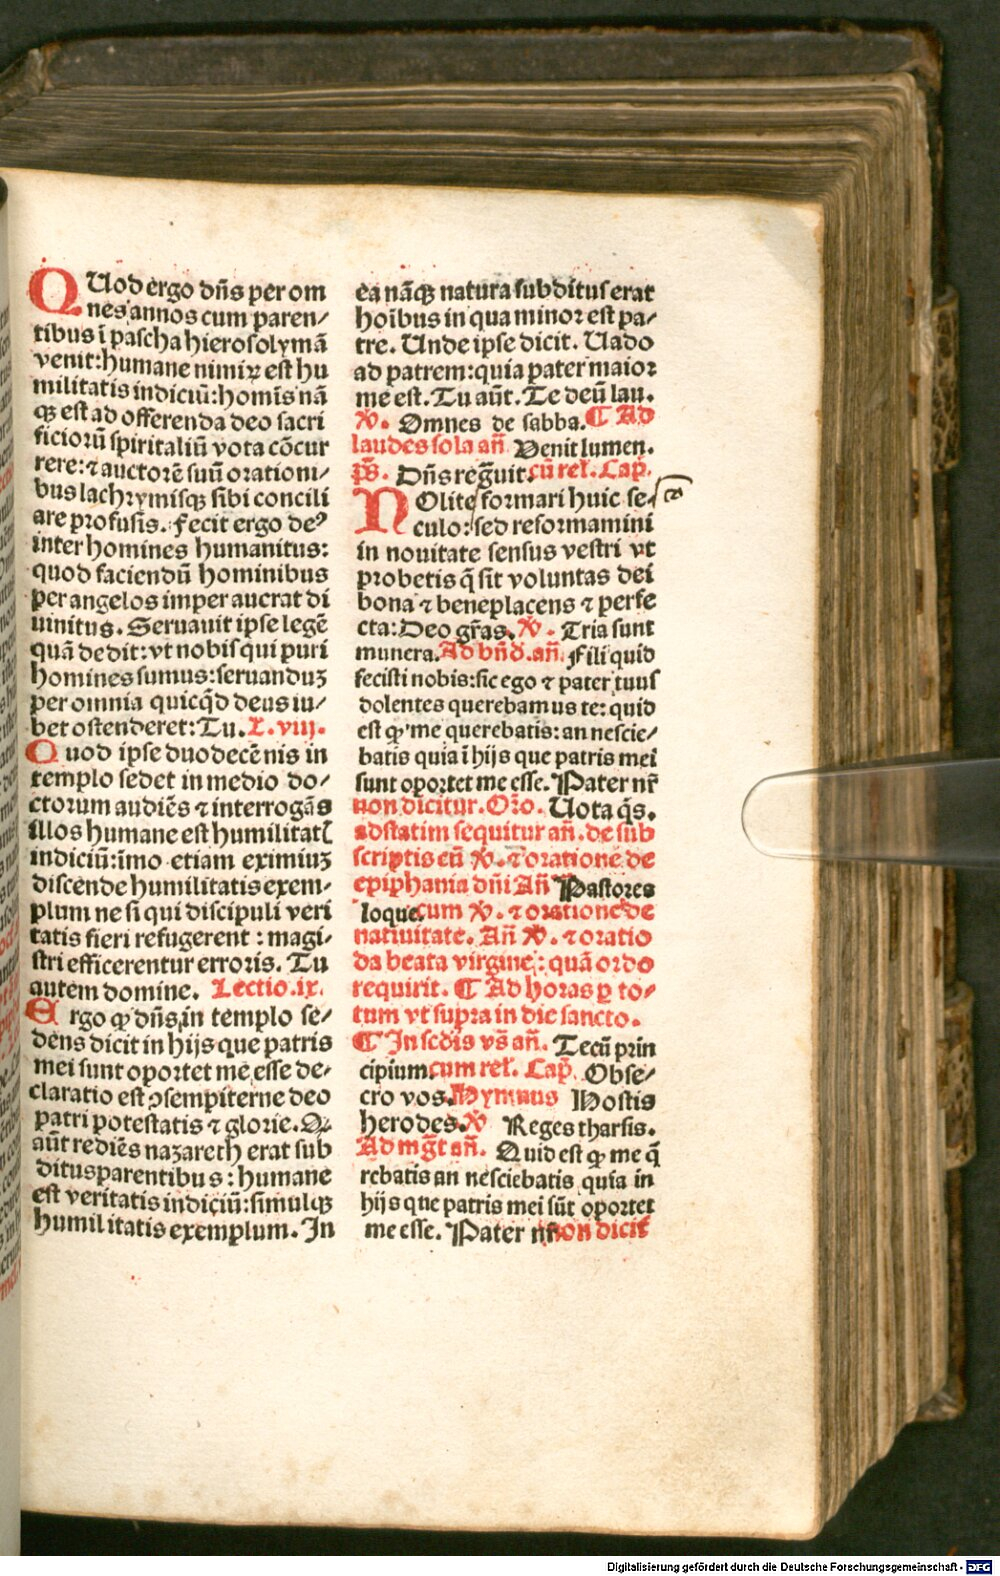 QUod ergo dn̄s per om
nes annos cum paren/
tibus ī pascha hierosolymā
venit: humane nimiꝝ est hu
militatis indiciū: homīs nā
qꝫ est ad offerenda deo sacri
ficiorū spiritaliū vota cōcur
rere: ⁊ auctorē suū orationi/
bus lachrymisqꝫ sibi concili
are profusis. Fecit ergo deꝰ
inter homines humanitus:
quod faciendū hominibus
per angelos imperaucrat di
uinitus. Seruauit ipse legē
quā dedit: vt nobis qui puri
homines sumus: seruanduꝫ
per omnia quicqd̄ deus iu/
bet ostenderet: Tu. L. viij.
Quod ipse duodecēnis in
templo sedet in medio do/
ctorum audiēs ⁊ interrogās
illos humane est humilitatꝭ
indiciū: īmo etiam eximiuꝫ
discende humilitatis exem/
plum ne si qui discipuli veri
tatis fieri refugerent: magi/
stri efficerentur erroris. Tu
autem domine. Lectio.ix.
Ergo ꝙ dn̄s in templo se/
dens dicit in hijs que patris
mei sunt oportet me esse de/
claratio est ꝯsempiterne deo
patri potestatis ⁊ glorie. Qꝛ
aūt rediēs nazareth erat sub
ditus parentibus: humane
est veritatis indiciū: simulqꝫ
humilitatis exemplum. In
ea nāqꝫ natura subditus erat
hoībus in qua minor est pa/
tre. Unde ipse dicit. Uado
ad patrem: quia pater maior
me est. Tu aūt. Te deū lau.
℣. Omnes de sabba. ¶ Ad
laudes sola an̄. Venit lumen.
ps̄. Dn̄s regnuit. cū rel. Cap̄.
NOlite formari huic se/
culo: sed reformamini
in nouitate sensus vestri vt
probetis q̄ sit voluntas dei
bona ⁊ beneplacens ⁊ perfe
cta: Deo gr̄as. ℣. Tria sunt
munera. Ad bn̄d. an̄. Fili quid
fecisti nobis: sic ego ⁊ pater tuus
dolentes querebamus te: quid
est ꝙ me querebatis: an nescie/
batis quia ī hijs que patris mei
sunt oportet me esse. Pater nr̄
non dicitur. Or̄o. Uota qs̄.
ad statim sequitur an̄. de sub
scriptis cū ℣. ⁊ oratione de
epiphania dn̄i An̄ Pastores
loque. cum ℣. ⁊ oratione de
natiuitate. An̄ ℣. ⁊ oratio
da beata virgine: quā ordo
requirit. ¶ Ad horas ꝑ to/
tum vt supra in die sancto.
¶ In scd̄is vs̄ an̄. Tecū prin
cipium. cum rel. Cap̄. Obse/
cro vos. Hymnus Hostis
herodes. ℣ Reges tharsis.
Ad mg̅t an̄. Quid est ꝙ me q̄
rebatis an nesciebatis quia in
hijs que patris mei sūt oportet
me esse. Pater nr̄ non dicit̄
Digitalisierung gefördert durch die Deutsche Forschungsgemeinschaft - DFG